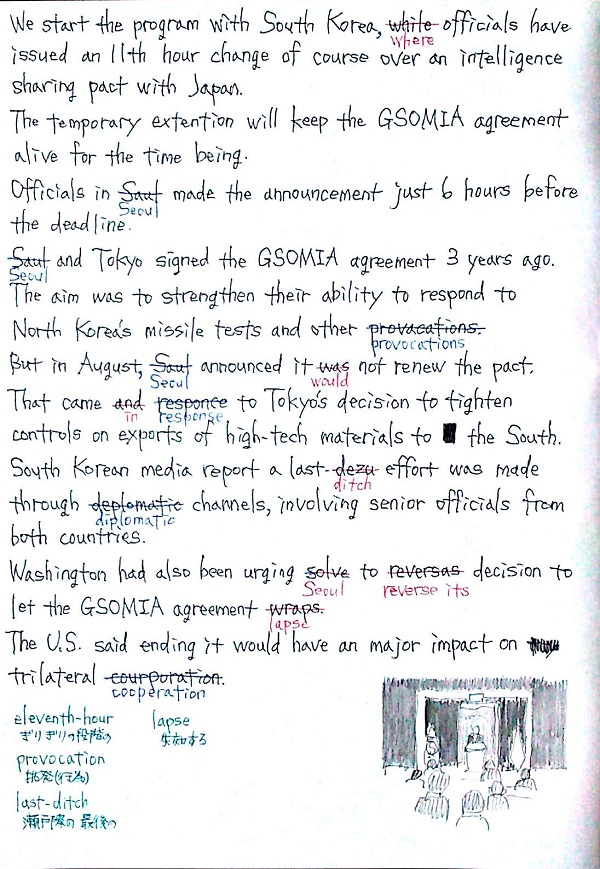 We start the program with South Korea, while officials have
where
issued an 11th hour change of course over an intelligence
sharing pact with Japan.
The temporary extention will keep the GSOMIA agreement
alive for the time being.
Officials in Saut made the announcement just 6 hours before
Seoul
the deadline.
Saut and Tokyo signed the GSOMIA agreement 3 years ago.
Seoul
The aim was to strengthen their ability to respond to
North Korea's missile tests and other provacations.
provocations
But in August, Saut announced it was not renew the pact.
Seoul would
That came and responce to Tokyo's decision to tighten
in response
controls on exports of high-tech materials to the South.
South Korean media report a last-dezu effort was made
ditch
through deplomatic channels, involving senior officials from
diplomatic
both countries.
Washington had also been urging solve to reversas decision to
Seoul reverse its
let the GSOMIA agreement wraps.
lapse
The U.S. said ending it would have an major impact on
trilateral courporation.
cooperation
eleventh-hour lapse
ぎりぎりの段階の 失効する
provocation
挑発(行為)
last-ditch
瀬戸際の 最後の